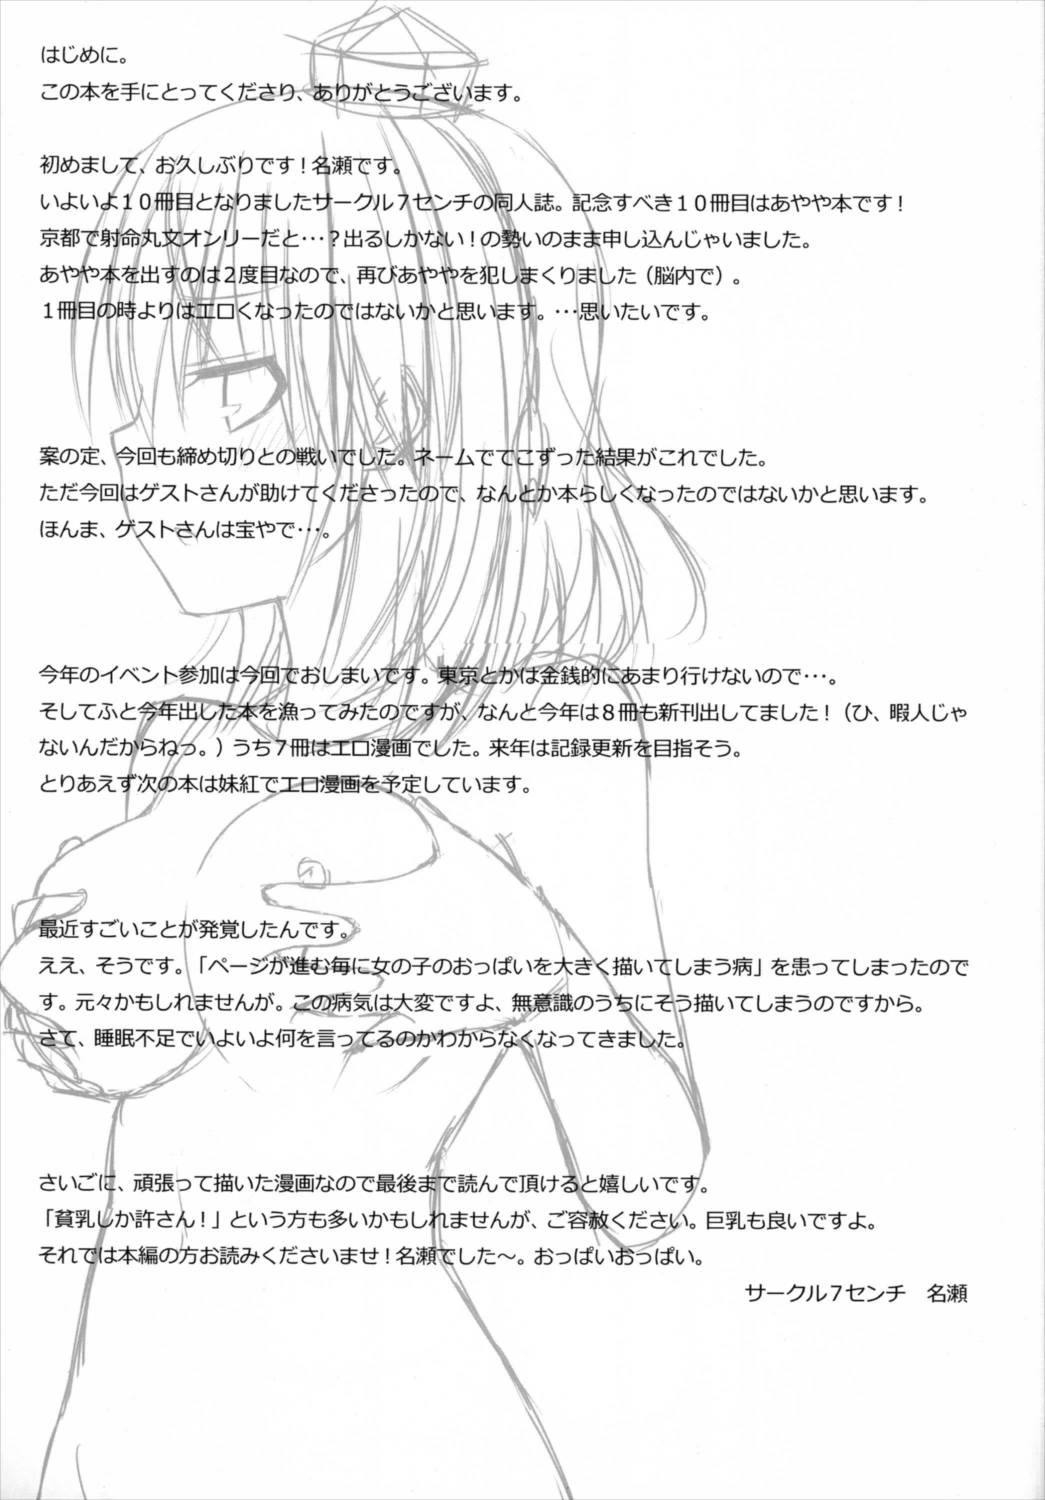 はじめに。
この本を手にとってくださり、ありがとうございます。
初めまして、お久しぶりです！名瀬です。
いよいよ１０冊目となりましたサークル７センチの同人誌。記念すべき１０冊目はあやや本です！
京都で射命丸文オンリーだと…？出るしかない！の勢いのまま申し込んじゃいました。
あやや本を出すのは２度目なので、再びあややを犯しまくりました（脳内で）。
１冊目の時よりはエロくなったのではないかと思います。…思いたいです。
案の定、今回も締め切りとの戦いでした。ネームでてこずった結果がこれでした。
ただ今回はゲストさんが助けてくださったので、なんとか本らしくなったのではないかと思います。
ほんま、ゲストさんは宝やで…。
今年のイベント参加は今回でおしまいです。東京とかは金銭的にあまり行けないので…。
そしてふと今年出した本を漁ってみたのですが、なんと今年は８冊も新刊出してました！（ひ、暇人じゃ
ないんだからねっ。）うち７冊はエロ漫画でした。来年は記録更新を目指そう。
とりあえず次の本は妹紅でエロ漫画を予定しています。
最近すごいことが発覚したんです。
ええ、そうです。「ページが進む毎に女の子のおっぱいを大きく描いてしまう病」を患ってしまったので
す。元々かもしれませんが。この病気は大変ですよ、無意識のうちにそう描いてしまうのですから。
さて、睡眠不足でいよいよ何を言ってるのかわからなくなってきました。
さいごに、頑張って描いた漫画なので最後まで読んで頂けると嬉しいです。
「貧乳しか許さん！」という方も多いかもしれませんが、ご容赦ください。巨乳も良いですよ。
それでは本編の方お読みくださいませ！名瀬でした～。おっぱいおっぱい。
サークル７センチ　名瀬